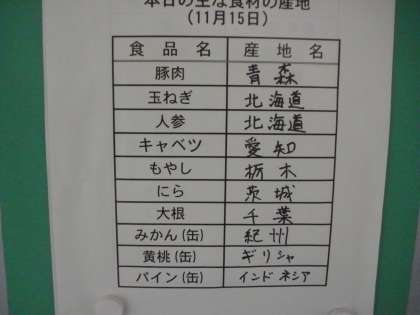 本日の主な食材の産地
(11月15日)
食品名 産地名
豚肉 青森
玉ねぎ 北海道
人参 北海道
キャベツ 愛知
もやし 栃木
にら 茨城
大根 千葉
みかん(缶) 紀州
黄桃(缶) ギリシャ
パイン(缶) インドネシア